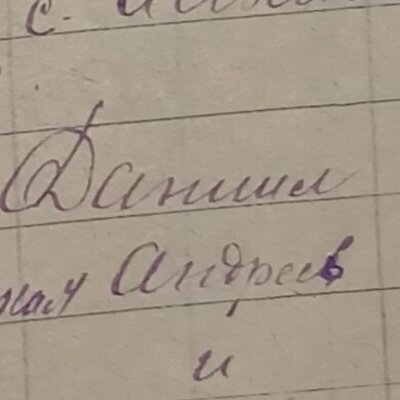 с.
Даниил
Андреев
и